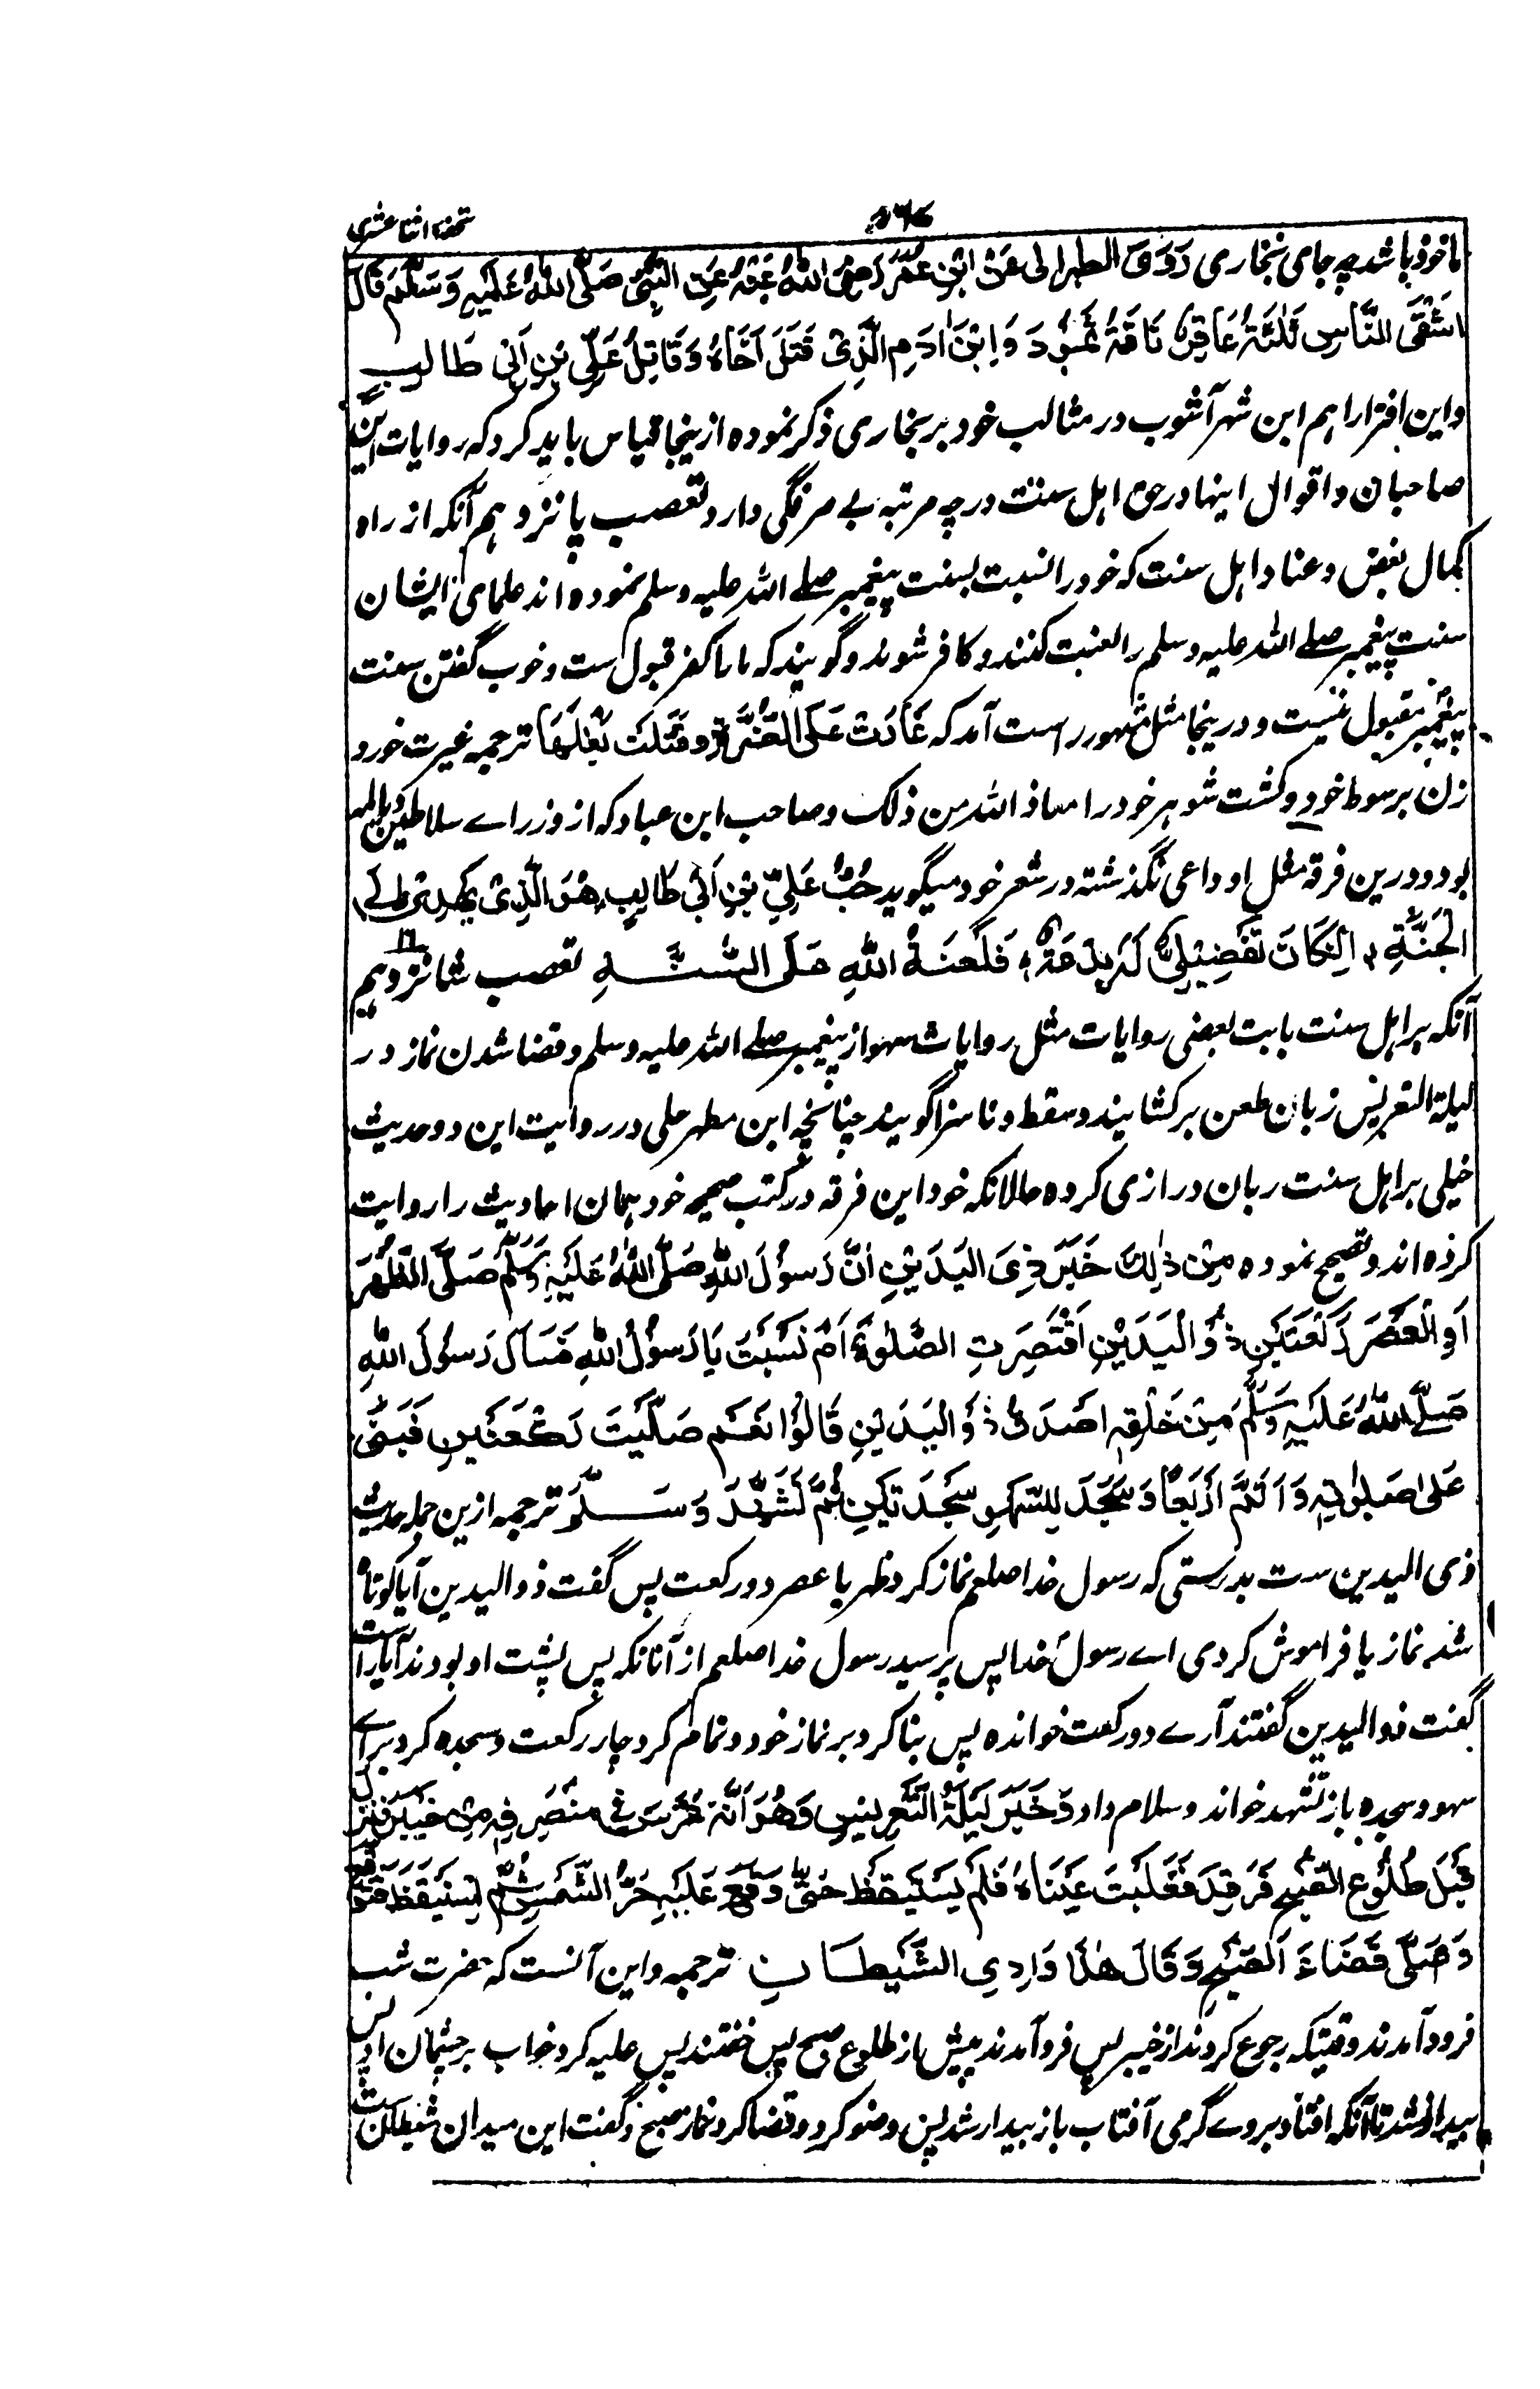 تحفۀ اثنا عشری
ماخوذ باشد چه جای بخاری رَوَی الطبرانی عَنِ ابْنِ عُمَرَ رَضِیَ اللّٰهُ عَنْهُ عَنِ النَّبِیِّ صَلَّی اللّٰهُ عَلَیْهِ وَسَلَّمَ قَالَ
اَشْقَی النَّاسِ ثَلٰثَةٌ عَاقِرُ نَاقَةِ ثَمُوْدَ وَابْنُ اٰدَمَ الَّذِیْ قَتَلَ اَخَاهُ وَقَاتِلُ عَلِیِّ بْنِ اَبِیْ طَالِبٍ
واین افترا را هم ابن شهرآشوب در مثالب خود بر بخاری ذکر نموده ازینجا قیاس باید کرد که روایات این
صاحبان و اقوال اینها در حق اهل سنت در چه مرتبه بے صرفگی دارد تعصب پانزدهم آنکه از راه
کمال بغض و عناد اهل سنت که خود را نسبت بسنت پیغمبر صلے اللہ علیه وسلم نموده اند علمای ایشان
سنت پیغمبر صلے اللہ علیه وسلم را لعنت کنند و کافر شوند و گویند که ما را کفر قبول ست و خوب گفتن سنت
پیغمبر مقبول نیست و درینجا مثل مشهور راست آمد که غَارَتْ عَلَی الضَّرَّةِ وقَتَلَتْ بَعْلَهَا ترجمه غیرت خورد
زن بر سوط خود و کشت شوهر خود را معاذ اللہ من ذلک و صاحب ابن عباد که از وزراے سلاطین دیالمه
بود و درین فرقه مثل او داعی نگذشته در شعر خود میگوید حُبُّ عَلِیِّ بْنِ اَبِیْ طَالِبٍ هُوَ الَّذِیْ یَهْدِیْ اِلَی
الْجَنَّةِ اِنْ كَانَ تَفْضِیْلِیْ لَهٗ بِدْعَةٌ فَلَعْنَةُ اللّٰهِ عَلَی السُّنَّةِ تعصب شانزدهم ۱۶
آنکه بر اهل سنت بابت بعضی روایات مثل روایات سهو از پیغمبر صلے اللہ علیه وسلم و قضا شدن نماز در
لیلة التعریس زبان طعن برکشایند و سقط و ناسزا گویند چنانچه ابن مطهر حلی در روایت این دو حدیث
خیلی بر اهل سنت زبان درازی کرده حالانکه خود این فرقه در کتب صحیحه خود همان احادیث را روایت
کرده اند و تصحیح نموده مِنْ ذٰلِكَ خَبَرُ ذِی الْیَدَیْنِ اَنَّ رَسُوْلَ اللّٰهِ صَلَّی اللّٰهُ عَلَیْهِ وَسَلَّمَ صَلَّی الظُّهْرَ
اَوِ الْعَصْرَ رَكْعَتَیْنِ ذُو الْیَدَیْنِ اَقُصِرَتِ الصَّلٰوةُ اَمْ نَسِیْتَ یَا رَسُوْلَ اللّٰهِ فَسَاَلَ رَسُوْلُ اللّٰهِ
صَلَّی اللّٰهُ عَلَیْهِ وَسَلَّمَ مِنْ خَلْفِهٖ اَصَدَقَ ذُو الْیَدَیْنِ قَالُوْا نَعَمْ صَلَّیْتَ رَكْعَتَیْنِ فَبَنٰی
عَلٰی صَلٰوتِهٖ وَاَتَمَّ اَرْبَعًا وَسَجَدَ لِلسَّهْوِ سَجْدَتَیْنِ ثُمَّ تَشَهَّدَ وَسَلَّمَ ترجمه ازین جمله حدیث
ذی الیدین ست بدرستی که رسول خدا صلعم نماز کرد ظهر یا عصر دو رکعت پس گفت ذوالیدین آیا کوتاه
شد نماز یا فراموش کردی اے رسول خدا پس پرسید رسول خدا صلعم از آنانکه پس پشت او بودند آیا راست
گفت ذوالیدین گفتند آرے دو رکعت خوانده پس بنا کرد بر نماز خود و تمام کرد چار رکعت و سجده کرد براے
سهو دو سجده باز تشهد خواند و سلام داد وَخَبَرُ لَیْلَةِ التَّعْرِیْسِ وَهُوَ اَنَّهٗ عَرَّسَ فِیْ مُنْصَرَفِهٖ مِنْ خَیْبَرَ فَنَزَلَ
قَبْلَ طُلُوْعِ الصُّبْحِ فَرَقَدَ فَغَلَبَتْ عَیْنَاهُ فَلَمْ یَسْتَیْقِظْ حَتّٰی وَقَعَ عَلَیْهِ حَرُّ الشَّمْسِ ثُمَّ اسْتَیْقَظَ فَتَوَضَّأَ
وَصَلّٰی قَضَاءَ الصُّبْحِ وَقَالَ هٰذَا وَادِی الشَّیْطَانِ ترجمه و این آنست که حضرت شب
فرود آمدند وقتیکه رجوع کردند از خیبر پس فرو آمدند پیش از طلوع صبح پس خفتند پس غلبه کرد خواب بر چشمان او پس
بیدار نشد تا آنکه افتاد بروے گرمی آفتاب باز بیدار شد پس وضو کرد و قضا کرد نماز صبح و گفت این میدان شیطان ست